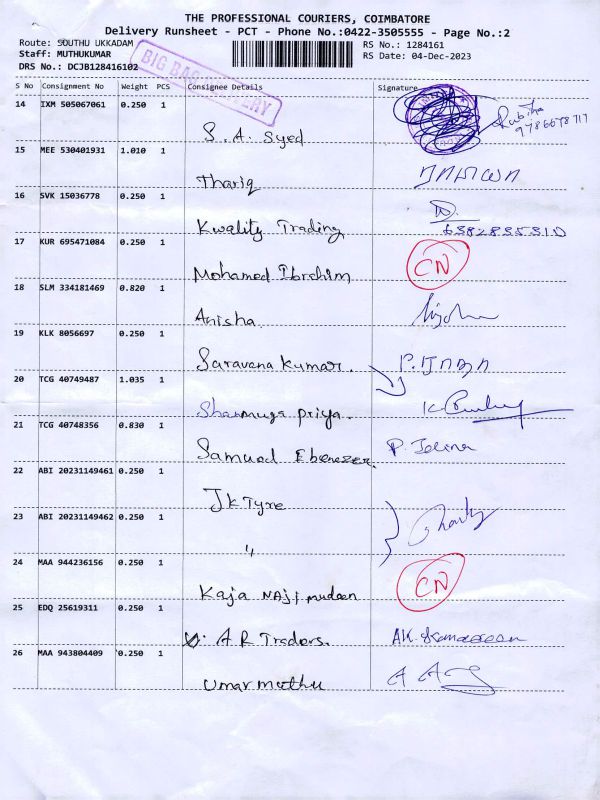 THE PROFESSIONAL COURIERS, COIMBATORE
Delivery Runsheet - PCT - Phone No.:0422-3505555 - Page No.:2
Route: SOUTHU UKKADAM
RS No.: 1284161
Staff: MUTHUKUMAR
RS Date: 04-Dec-2023
DRS No.: DCJB128416102
BIG BAG DELIVERY
S No Consignment No Weight PCS Consignee Details Signature
14 IXM 505067061 0.250 1
S. A. Syed
9786678717
15 MEE 530401931 1.010 1
Thariq
16 SVK 15036778 0.250 1
Kwality Trading
6382835310
17 KUR 695471084 0.250 1
Mohamed Ibrahim CN
18 SLM 334181469 0.820 1
Anisha
19 KLK 8056697 0.250 1
Saravana Kumar.
20 TCG 40749487 1.035 1
Shanmuga priya.
21 TCG 40748356 0.830 1
Samuel Ebenezer.
22 ABI 20231149461 0.250 1
JK Tyre
23 ABI 20231149462 0.250 1
"
24 MAA 944236156 0.250 1
Kaja Najimudeen CN
25 EDQ 25619311 0.250 1
A R Traders.
26 MAA 943804409 0.250 1
Umar muthu